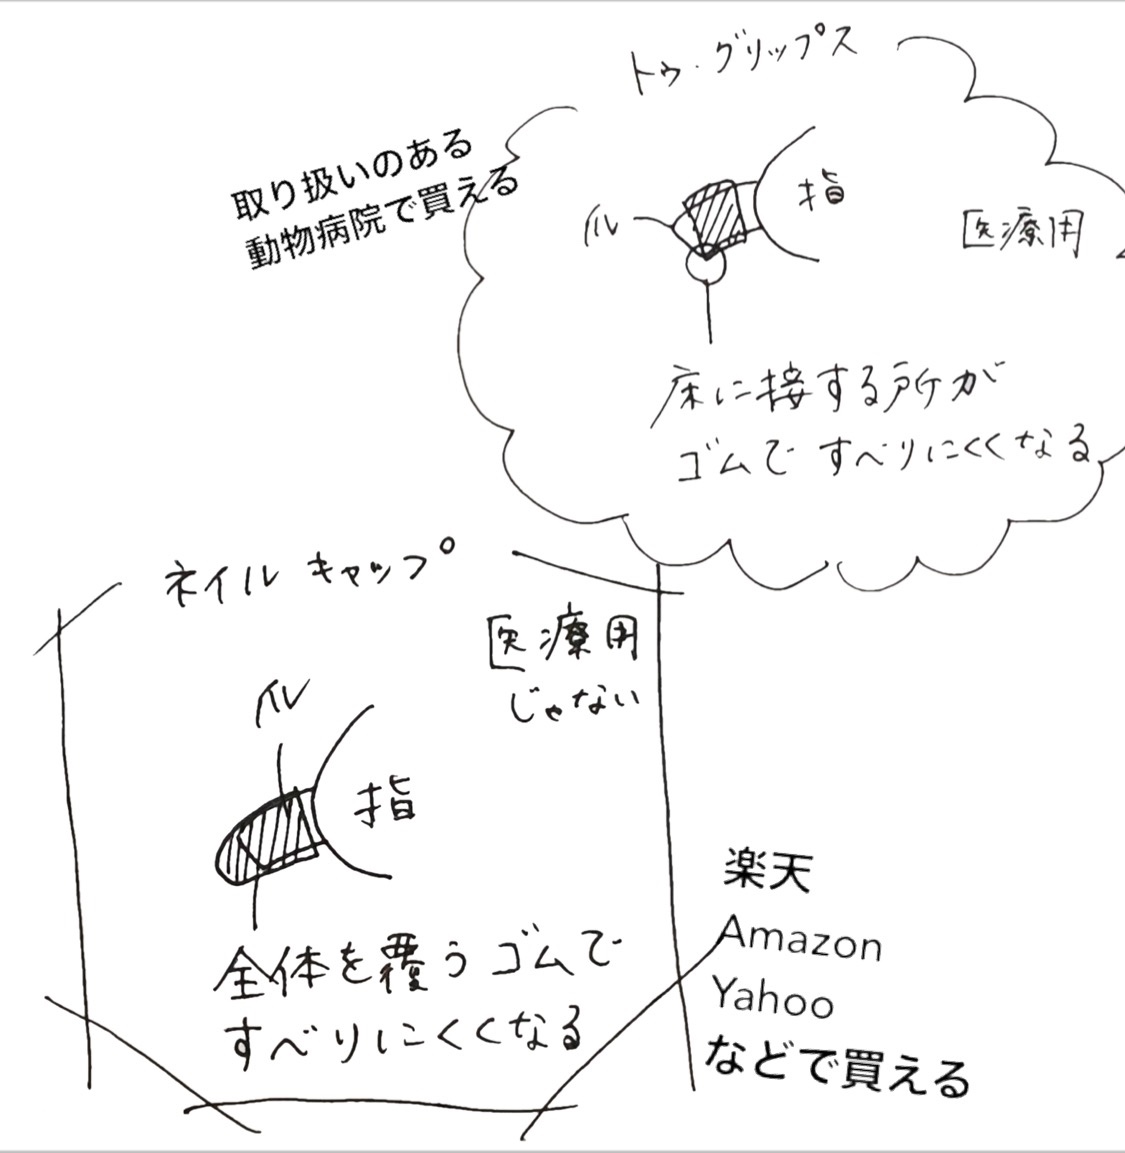 トゥ・グリップス
取り扱いのある
動物病院で買える
爪
指
医療用
床に接する所が
ゴムで すべりにくくなる
ネイル キャップ
医療用
じゃない
爪
指
全体を覆うゴムで
すべりにくくなる
楽天
Amazon
Yahoo
などで買える